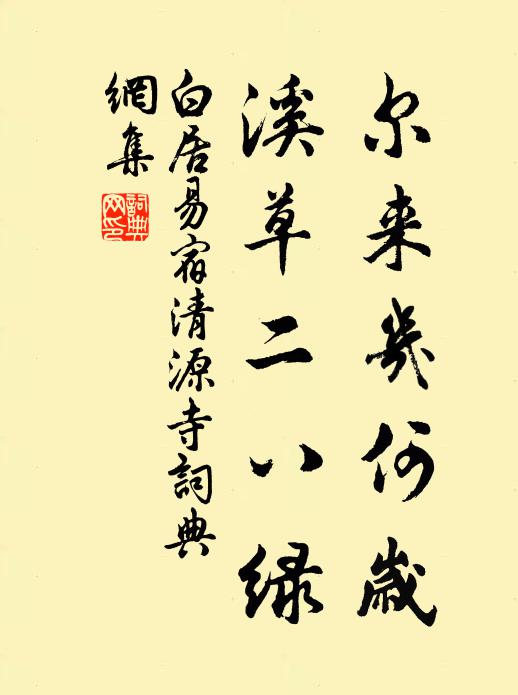 尔来几何歲
溪草二八绿
白居易宿清源寺詞典
網集
詞典
网印